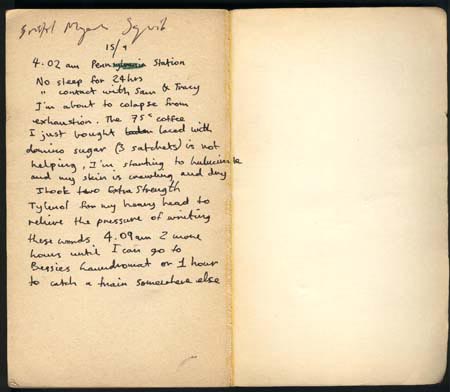 Bristol Myers Squib
15/9
4.02 am Pennsylvania Station
No sleep for 24hrs
" contact with Sam & Tracy
I'm about to colapse from
exhaustion. The 75c coffee
I just bought laced with
domino sugar (3 satchets) is not
helping, I'm starting to halucinate
and my skin is crawling and dry
I took two Extra Strength
Tylenol for my heavy head to
relieve the pressure of writing
these words. 4.09am 2 more
hours until I can go to
Bessies Laundromat or 1 hour
to catch a train somewhere else